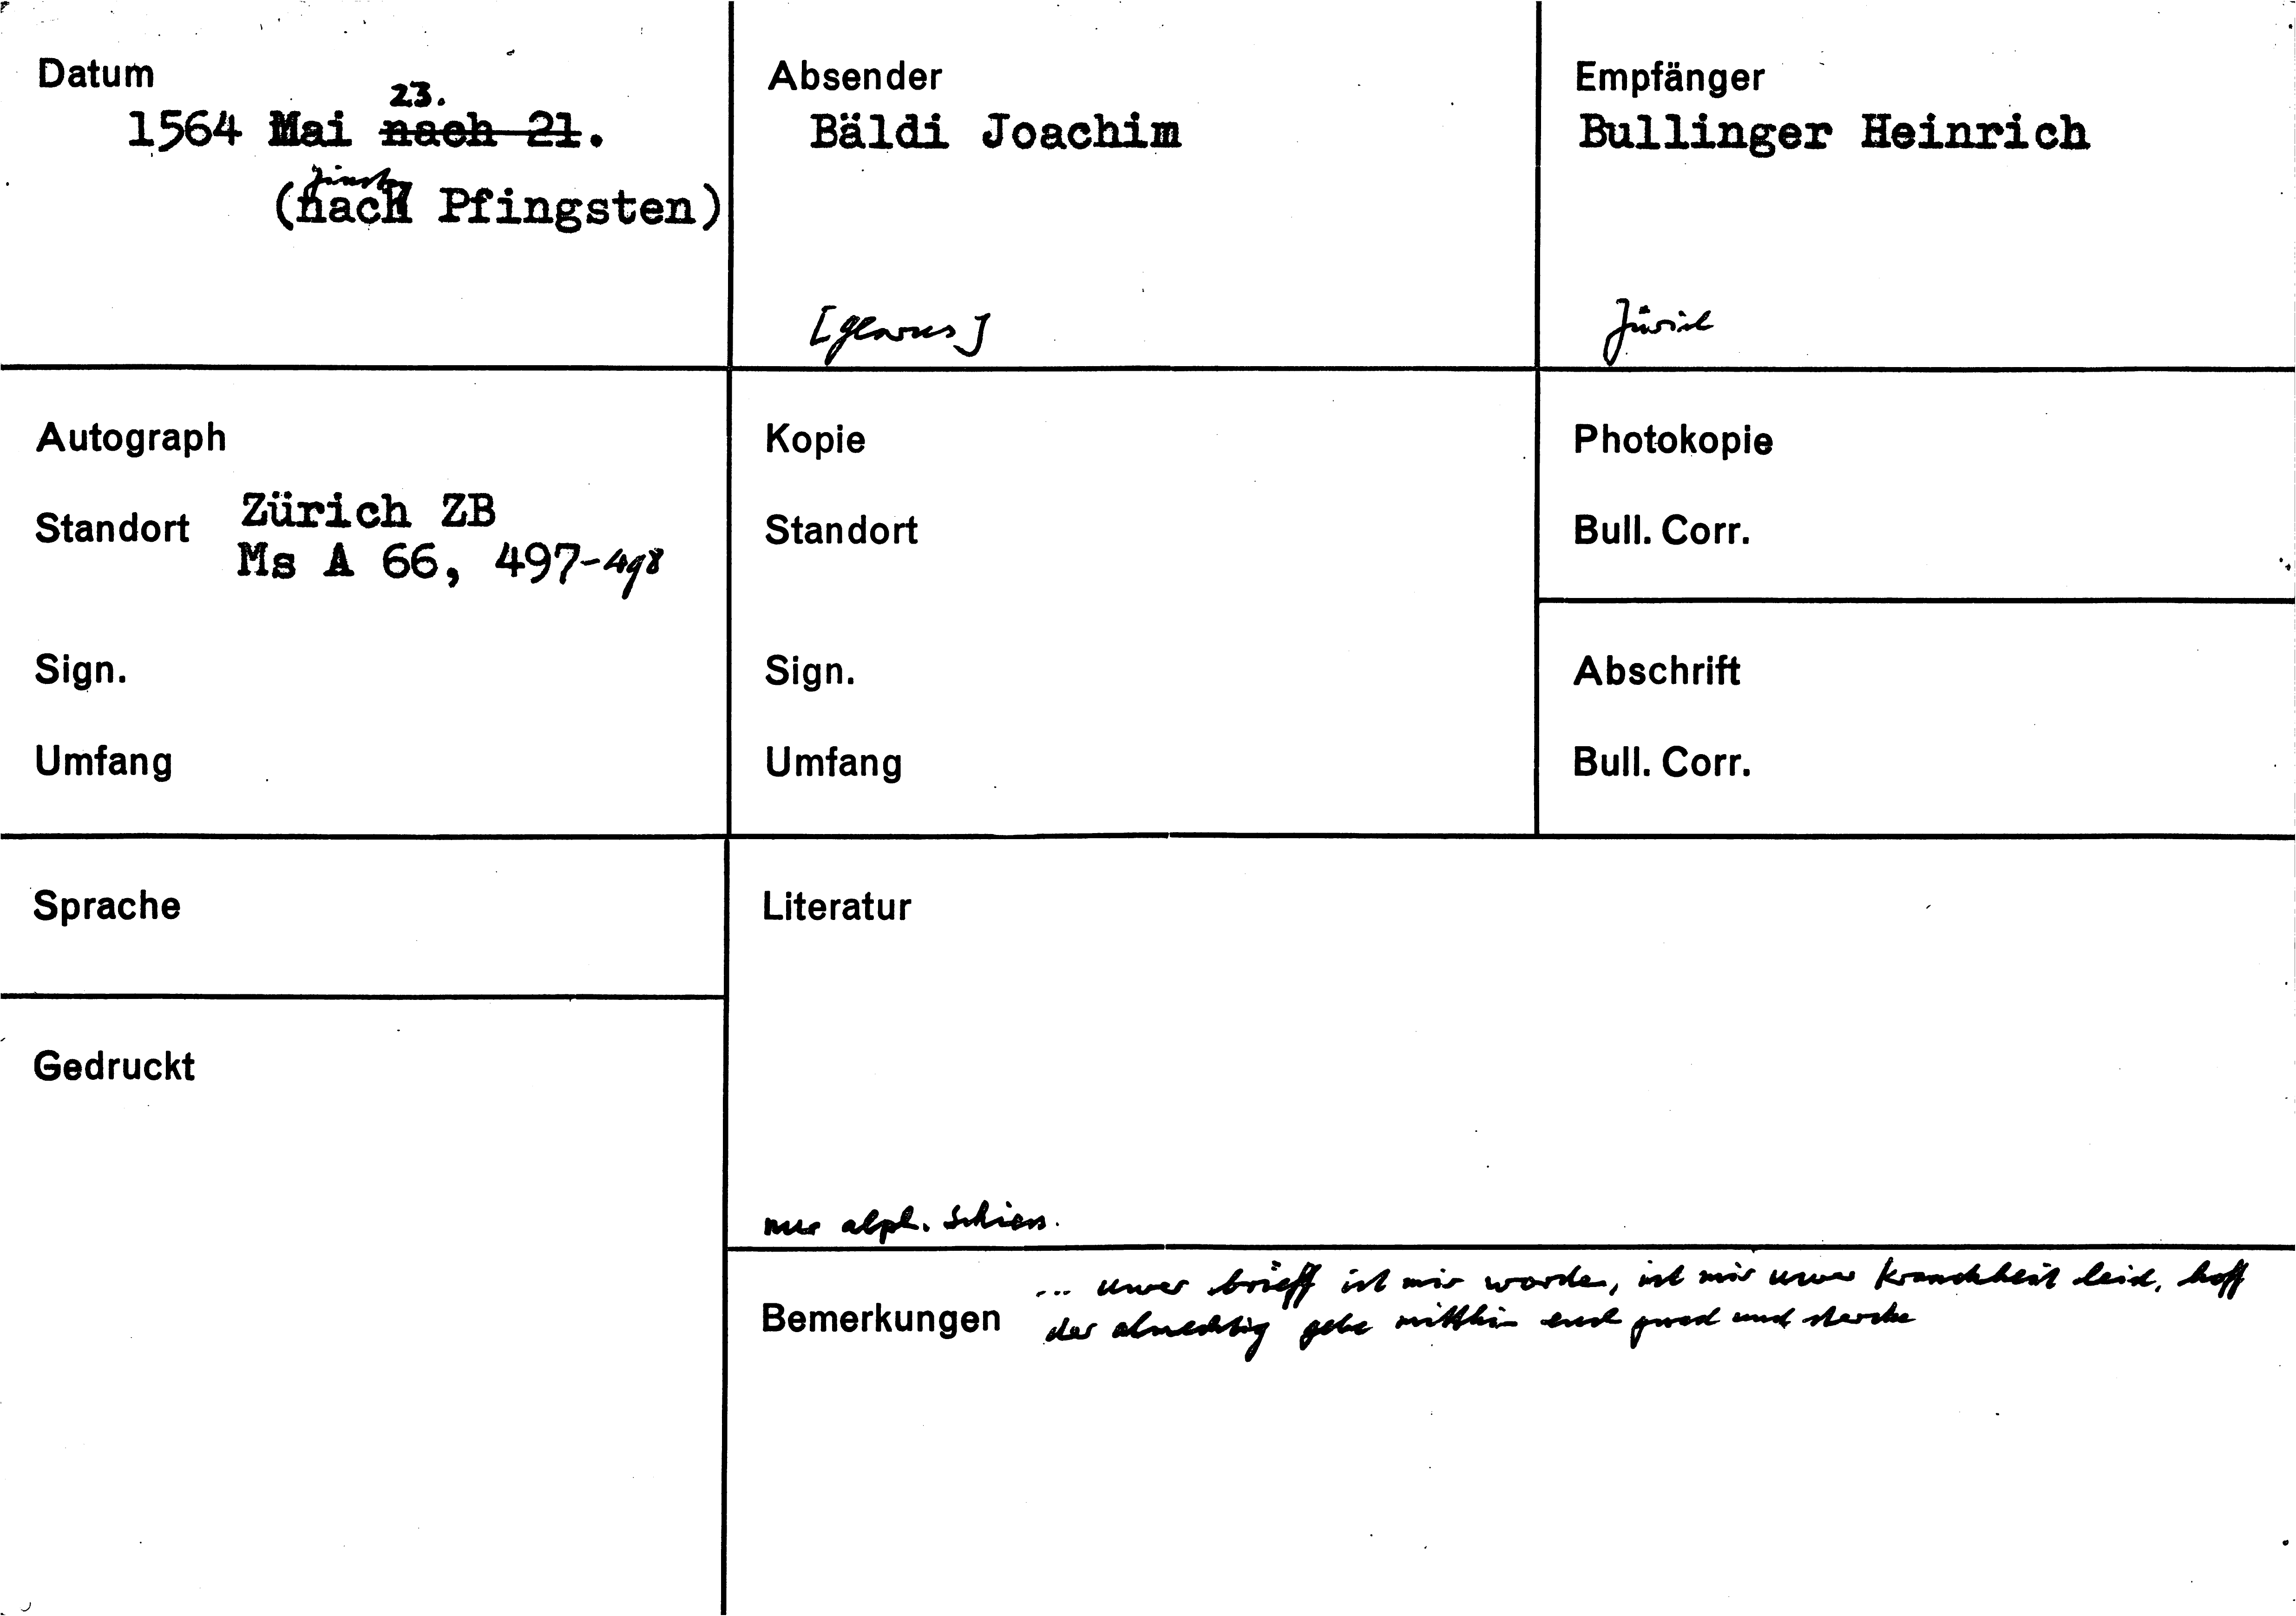 Datum
23.
1564 Mai nach 21.
(nach Pfingsten)
Absender
Bäldi Joachim
[Glarus]
Empfänger
Bullinger Heinrich
Zürich
Autograph
Standort Zürich ZB
Ms A 66, 497-498
Sign.
Umfang
Kopie
Standort
Sign.
Umfang
Photokopie
Bull. Corr.
Abschrift
Bull. Corr.
Sprache
Gedruckt
Literatur
nur alph. Schiess.
Bemerkungen
... uwer brieff ist mir worden, ist mir uwer kranckheit leid, hoff
der almechtig gebe mitthin und stercke